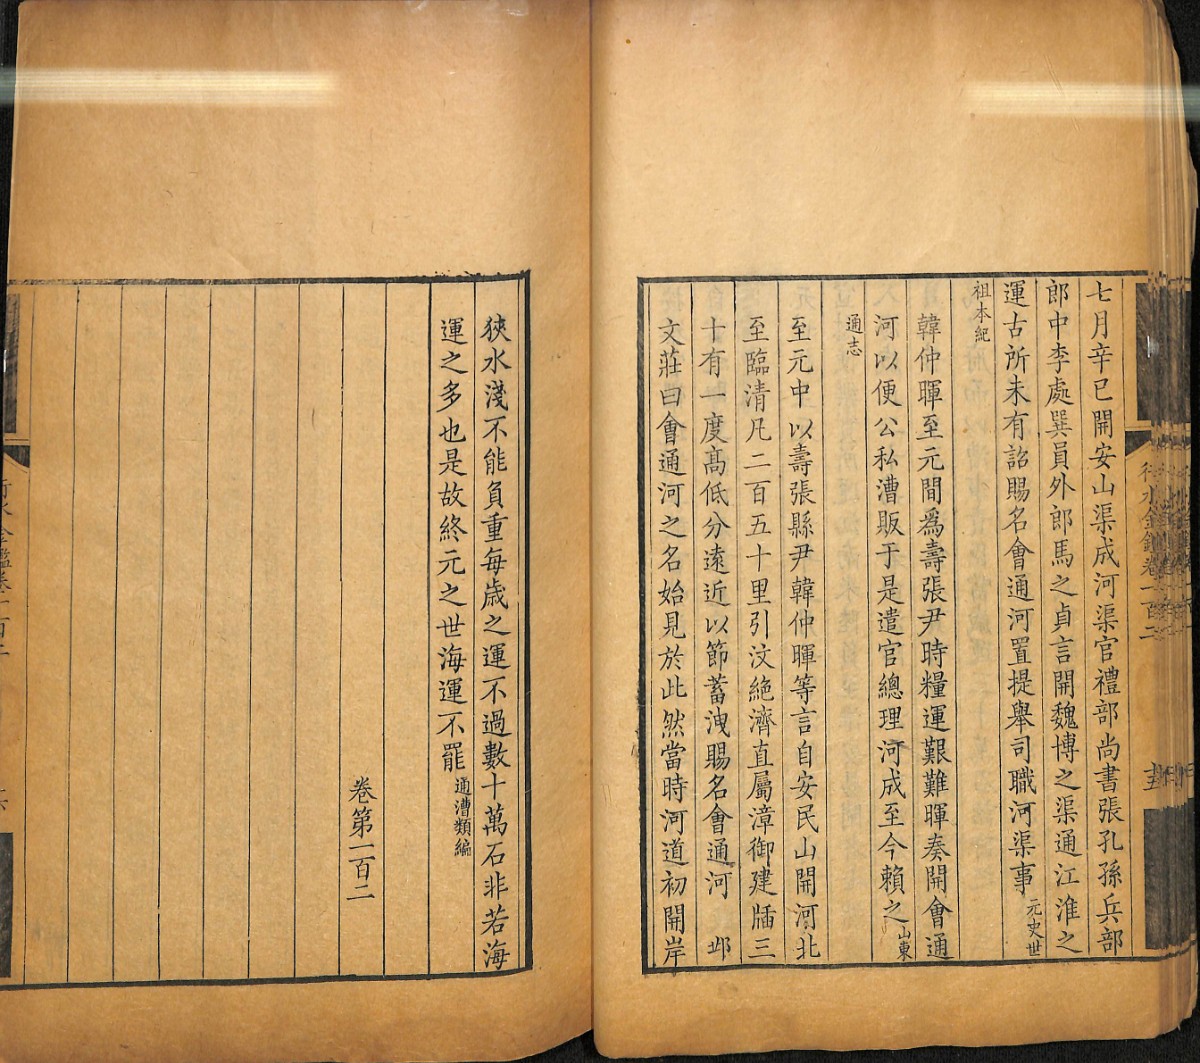 七月辛巳開安山渠成河渠官禮部尚書張孔孫兵部
郎中李處巽員外郎馬之貞言開魏博之渠通江淮之
運古所未有詔賜名會通河置提舉司職河渠事元史世
祖本紀
韓仲暉至元間爲壽張尹時糧運艱難暉奏開會通
河以便公私漕販于是遣官總理河成至今賴之山東
通志
至元中以壽張縣尹韓仲暉等言自安民山開河北
至臨清凡二百五十里引汶絶濟直屬漳御建牐三
十有一度髙低分遠近以節蓄洩賜名會通河 邱
文莊曰會通河之名始見於此然當時河道初開岸
行水金鑑卷一百二
狹水淺不能負重每歲之運不過數十萬石非若海
運之多也是故終元之世海運不罷通漕類編
卷第一百二
行水金鑑卷一百二